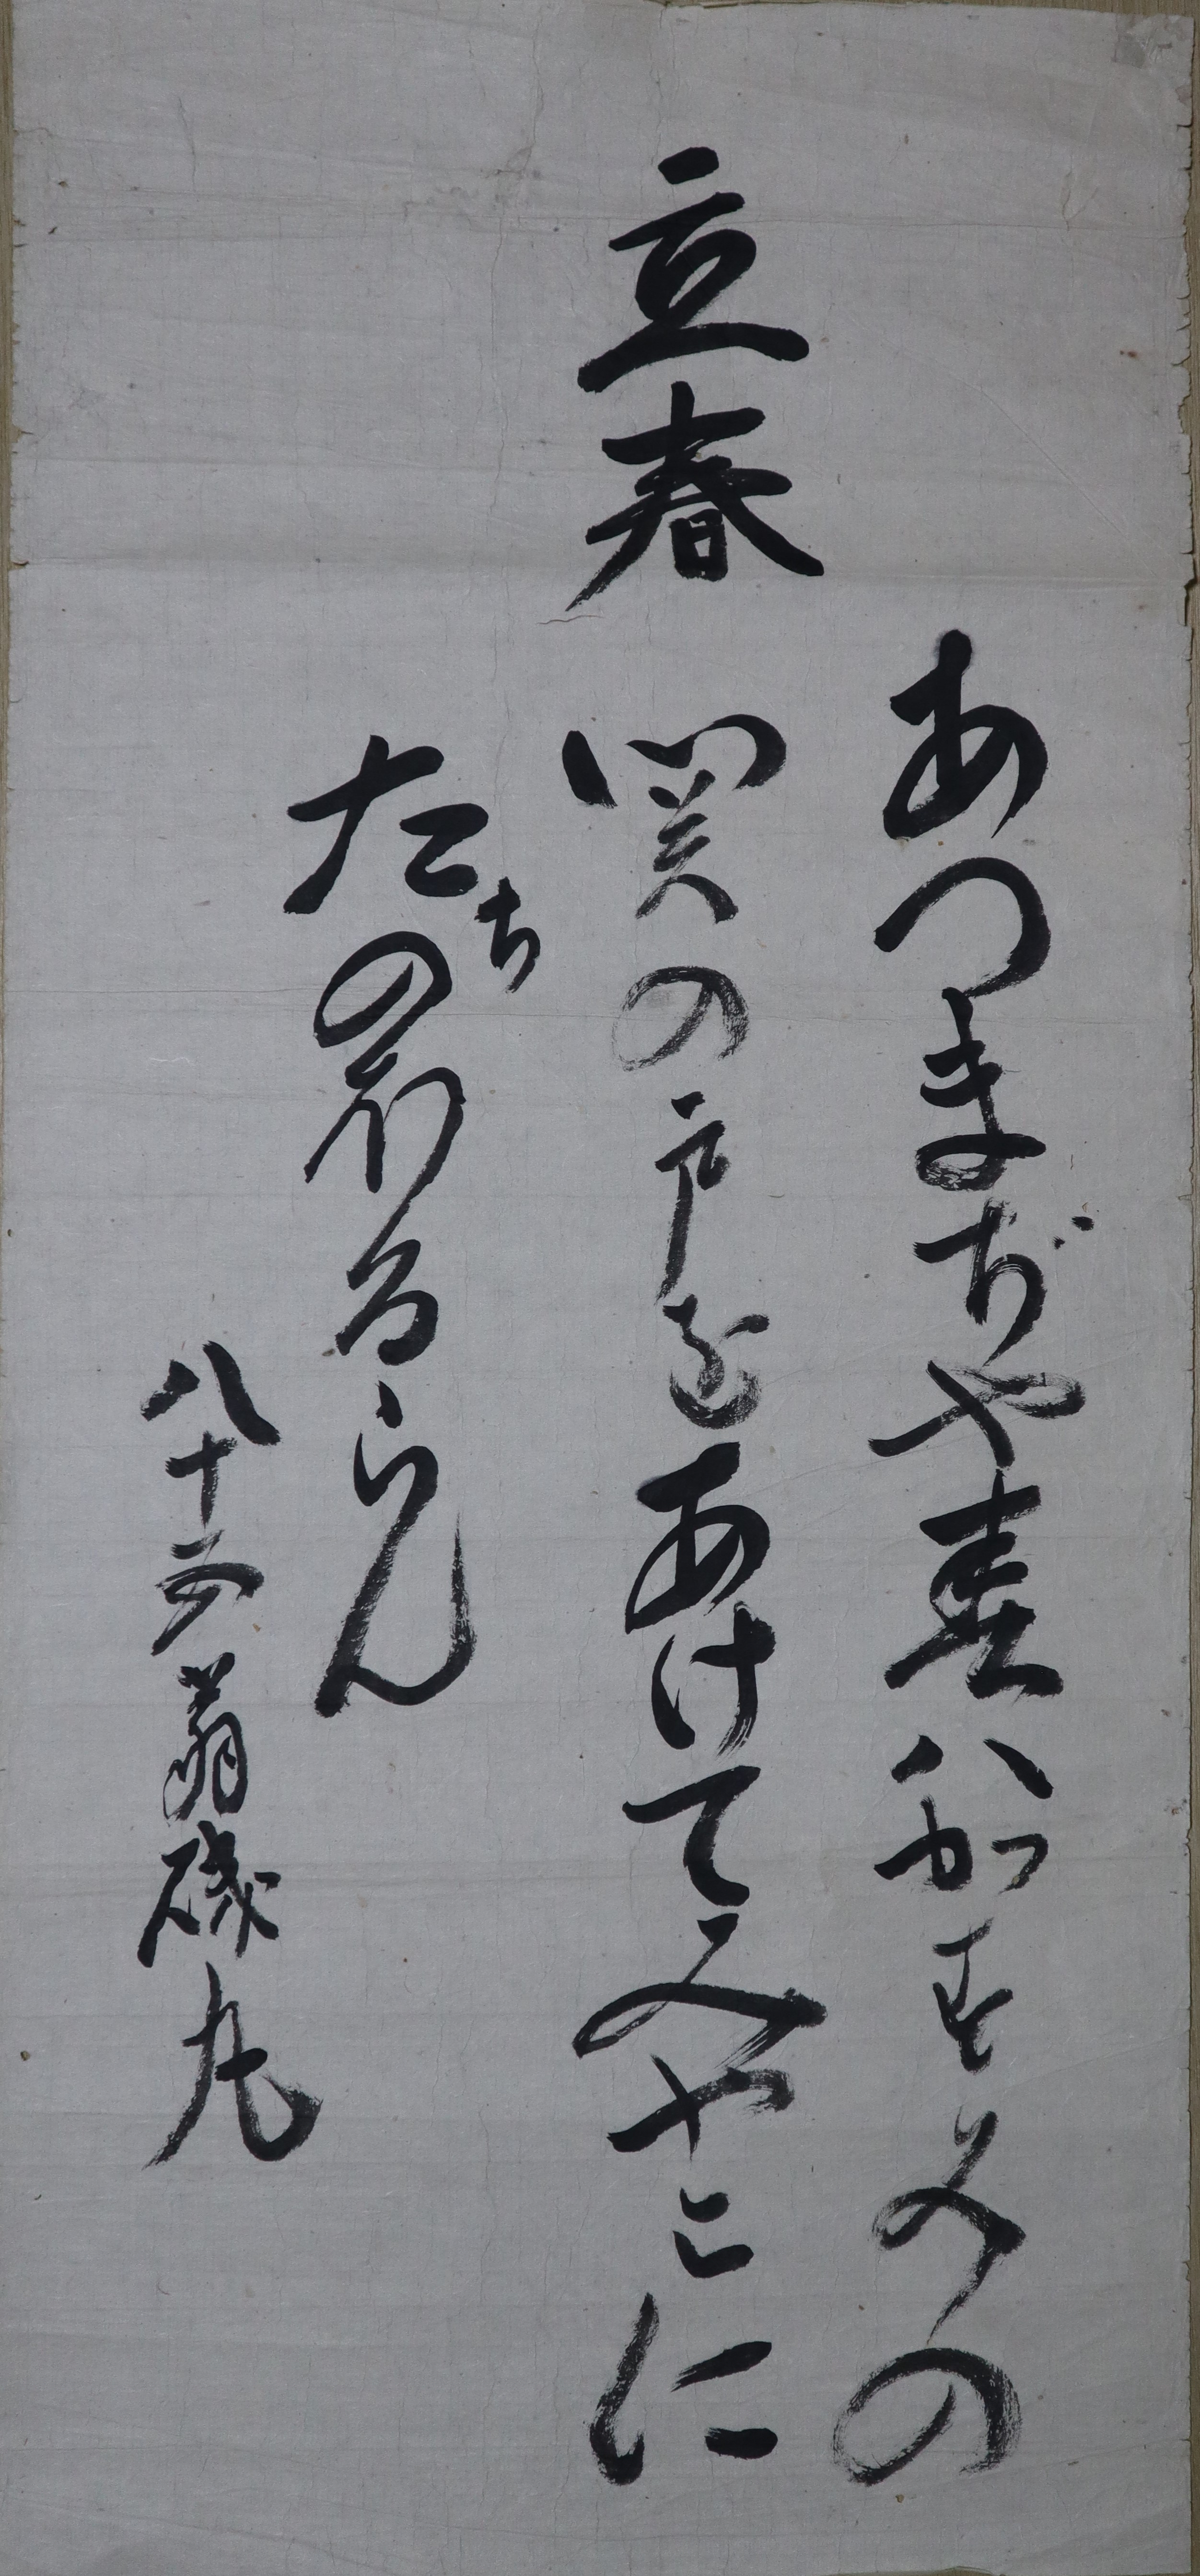 立春
あつまぢや春ハかすみの
関の戸をあけてみやこに
たちのほるらん
八十五翁磯丸